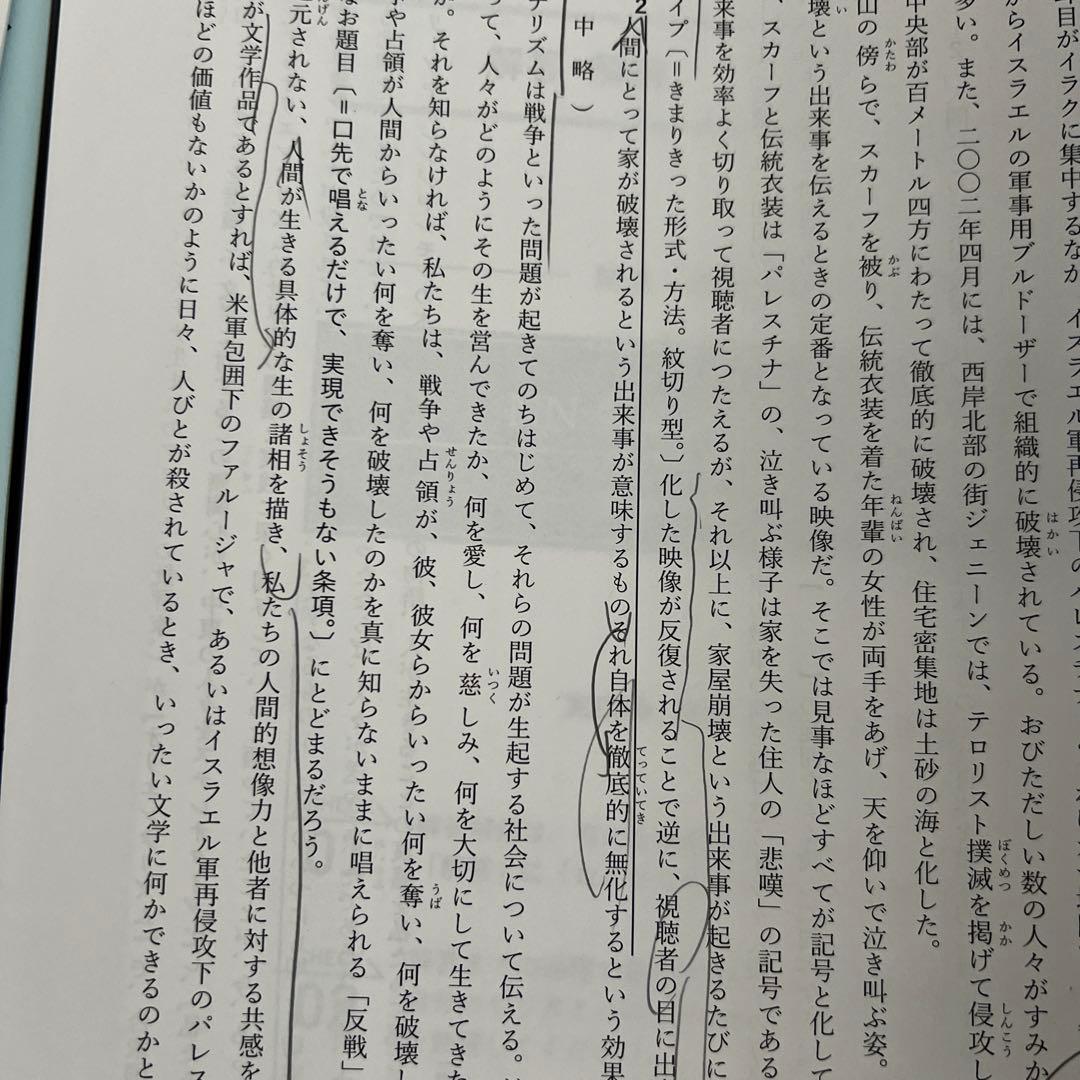 年目がイラクに集中するなか、イスラエル軍再侵攻下のパレスチナ
からイスラエルの軍事用ブルドーザーで組織的に破壊されている。おびただしい数の人々がすみか
多い。また、二〇〇二年四月には、西岸北部の街ジェニーンでは、テロリスト撲滅を掲げて侵攻し
中央部が百メートル四方にわたって徹底的に破壊され、住宅密集地は土砂の海と化した。
山の傍らで、スカーフを被り、伝統衣装を着た年輩の女性が両手をあげ、天を仰いで泣き叫ぶ姿。
壊という出来事を伝えるときの定番となっている映像だ。そこでは見事なほどすべてが記号と化して
、スカーフと伝統衣装は「パレスチナ」の、泣き叫ぶ様子は家を失った住人の「悲嘆」の記号である
来事を効率よく切り取って視聴者につたえるが、それ以上に、家屋崩壊という出来事が起きるたびに
イプ〔＝きまりきった形式・方法。紋切り型。〕化した映像が反復されることで逆に、視聴者の目に出
2 人間にとって家が破壊されるという出来事が意味するものそれ自体を徹底的に無化するという効果
中略）
ナリズムは戦争といった問題が起きてのちはじめて、それらの問題が生起する社会について伝える。
って、人々がどのようにその生を営んできたか、何を愛し、何を慈しみ、何を大切にして生きてきた
か。それを知らなければ、私たちは、戦争や占領が、彼、彼女らからいったい何を奪い、何を破壊し
争や占領が人間からいったい何を奪い、何を破壊したのかを真に知らないままに唱えられる「反戦」
なお題目〔＝口先で唱えるだけで、実現できそうもない条項。〕にとどまるだろう。
元されない、人間が生きる具体的な生の諸相を描き、私たちの人間的想像力と他者に対する共感を
が文学作品であるとすれば、米軍包囲下のファルージャで、あるいはイスラエル軍再侵攻下のパレス
ほどの価値もないかのように日々、人びとが殺されているとき、いったい文学に何かできるのかと